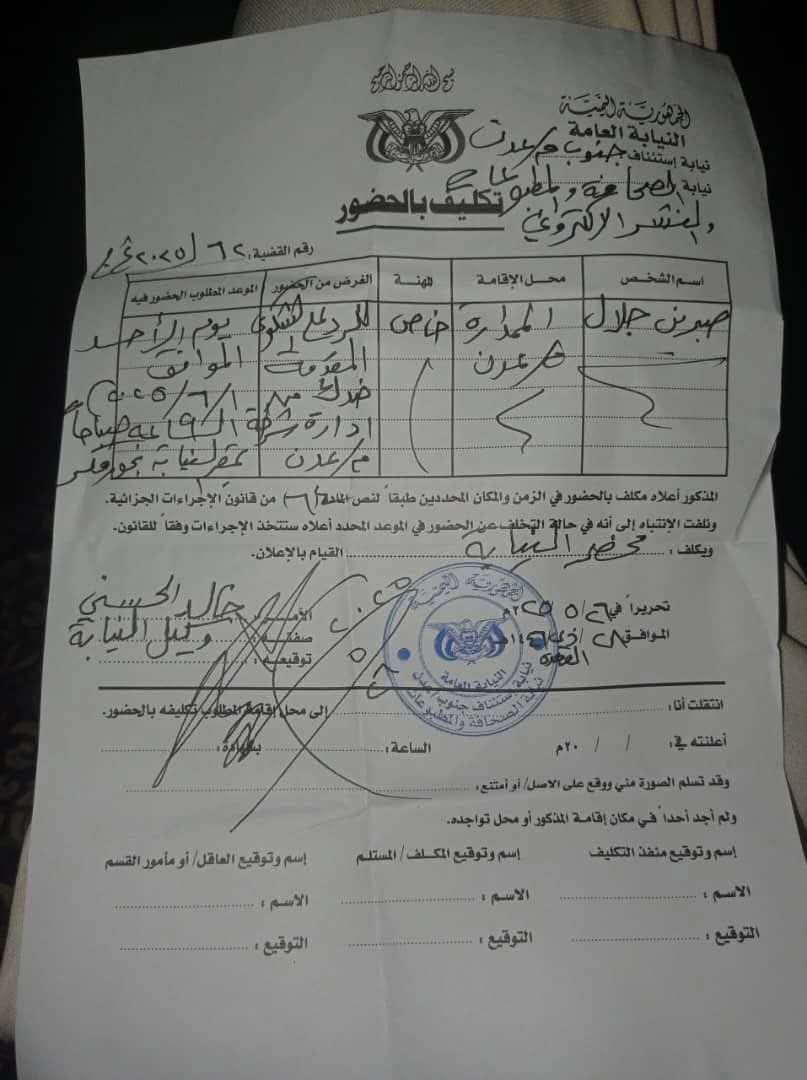 بسم الله الرحمن الرحيم
الجمهورية اليمنية
النيابة العامة
نيابة إستئناف جنوب م/عدن
نيابة الصحافة والمطبوعات
والنشر الإلكتروني
تكليف بالحضور
رقم القضية: ٦٢ / ٢٠٢٥
اسم الشخص
محل الإقامة
المهنة
الغرض من الحضور
الموعد المطلوب الحضور فيه
صبرين جلال
الممدارة
م/عدن
خاص
للرد على الشكوى
المقدمة
ضدك من
ادارة شرطة
م/عدن
يوم الأحد
الموافق
١/٦/٢٠٢٥م
الساعة ٩ صباحاً
بمقر النيابة بخور مكسر
المذكور أعلاه مكلف بالحضور في الزمن والمكان المحددين طبقاً لنص المادة من قانون الإجراءات الجزائية.
ونلفت الإنتباه إلى أنه في حالة التخلف عن الحضور في الموعد المحدد أعلاه ستتخذ الإجراءات وفقاً للقانون.
ويكلف: محضر النيابة القيام بالإعلان.
تحريراً في ٢٦/٥/٢٠٢٥م
الموافق ٢٨/ ذي القعدة /١٤٤٦هـ
الآمر خالد الحسني
صفته وكيل النيابة
توقيعه
الجمهورية اليمنية
النيابة العامة
نيابة إستئناف جنوب عدن
نيابة الصحافة والمطبوعات
انتقلت أنا: إلى محل إقامة المطلوب تكليفه بالحضور.
أعلنته في: / / ٢٠م الساعة: بشهادة:
وقد تسلم الصورة مني ووقع على الاصل/ أو أمتنع:
ولم أجد أحداً في مكان إقامة المذكور أو محل تواجده.
إسم وتوقيع منفذ التكليف
إسم وتوقيع المكلف/ المستلم
إسم وتوقيع العاقل/ أو مأمور القسم
الاسم:
الاسم:
الاسم:
التوقيع:
التوقيع:
التوقيع: